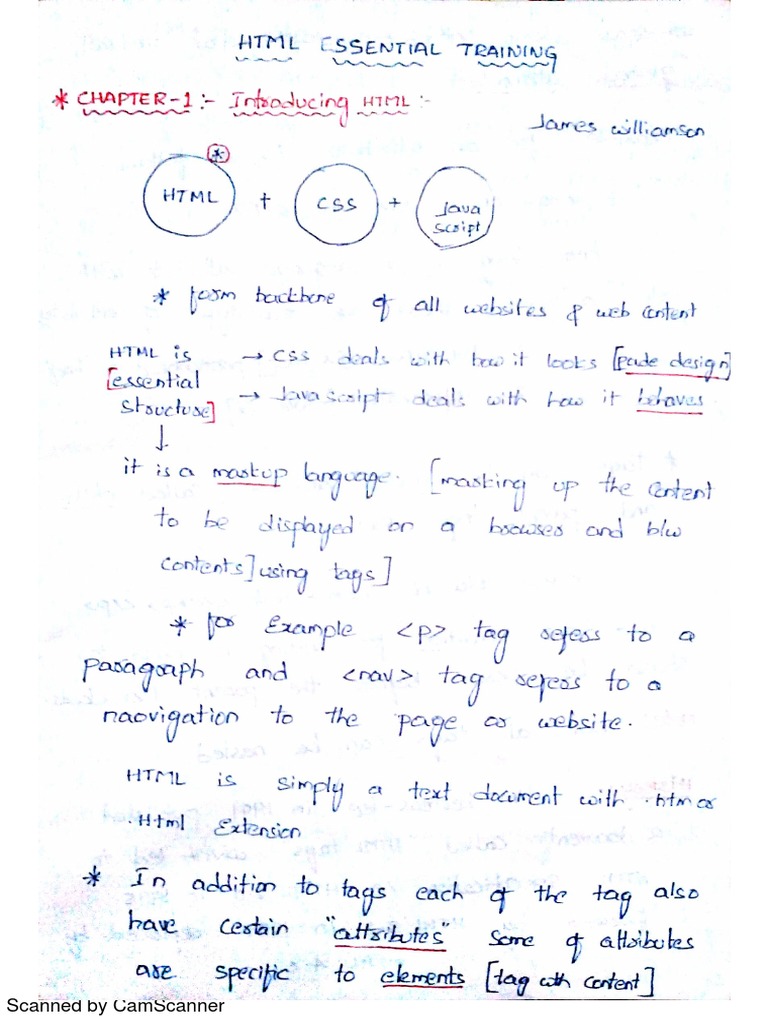 HTML ESSENTIAL TRAINING
* CHAPTER-1 :- Introducing HTML :-
James williamson
*
HTML + CSS + Java
script
* form backbone of all websites & web content
HTML is → CSS deals with how it looks [pade design]
[essential
structure] → Javascript deals with how it behaves
↓
it is a markup language. [marking up the content
to be displayed on a browser and b/w
contents] using tags]
* for Example <p> tag refers to a
paragraph and <nav> tag refers to a
naovigation to the page or website.
HTML is simply a text document with .htm or
.Html Extension
* In addition to tags each of the tag also
have certain "attributes" some of attributes
are specific to elements [tag with content]
Scanned by CamScanner